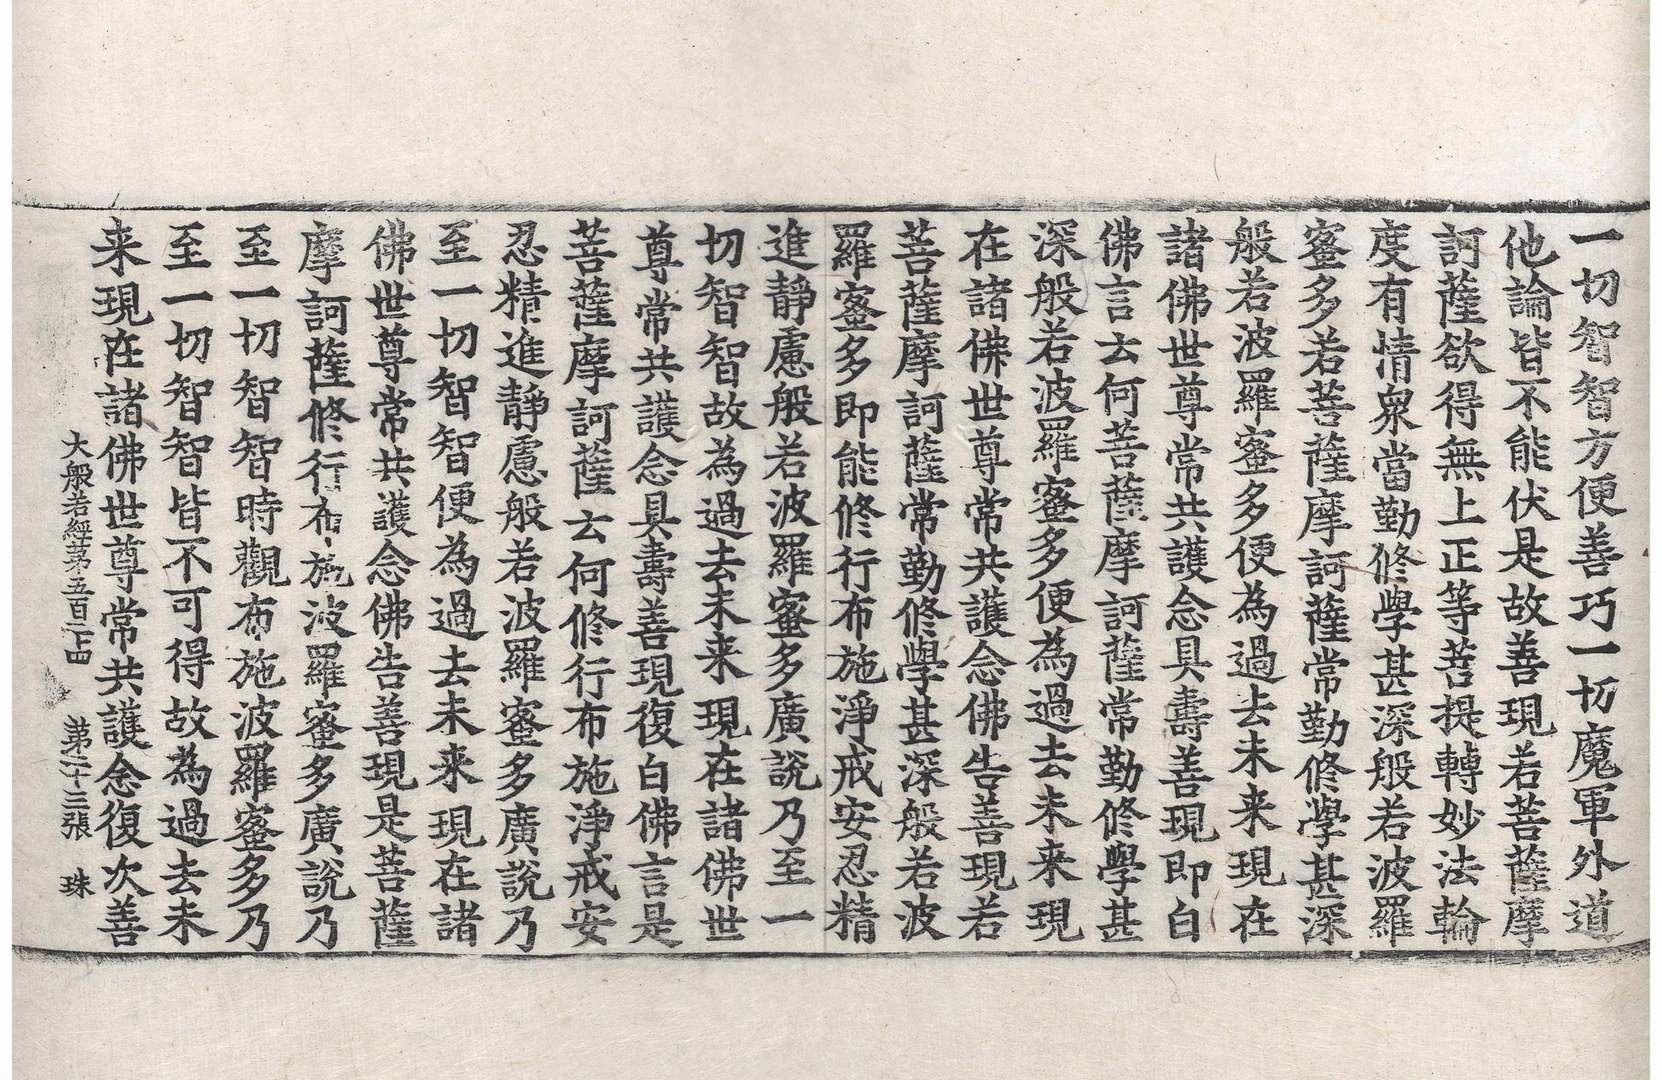 一切智智方便善巧一切魔軍外道
他論皆不能伏是故善現若菩薩摩
訶薩欲得無上正等菩提轉妙法輪
度有情衆當勤修學甚深般若波羅
蜜多若菩薩摩訶薩常勤修學甚深
般若波羅蜜多便為過去未来現在
諸佛世尊常共護念具壽善現即白
佛言云何菩薩摩訶薩常勤修學甚
深般若波羅蜜多便為過去未来現
在諸佛世尊常共護念佛告善現若
菩薩摩訶薩常勤修學甚深般若波
羅蜜多即能修行布施淨戒安忍精
進靜慮般若波羅蜜多廣說乃至一
切智智故為過去未来現在諸佛世
尊常共護念具壽善現復白佛言是
菩薩摩訶薩云何修行布施淨戒安
忍精進靜慮般若波羅蜜多廣說乃
至一切智智便為過去未来現在諸
佛世尊常共護念佛告善現是菩薩
摩訶薩修行布施波羅蜜多廣說乃
至一切智智時觀布施波羅蜜多乃
至一切智智皆不可得故為過去未
来現在諸佛世尊常共護念復次善
大般若經第五百二十四 第二十三張 珠